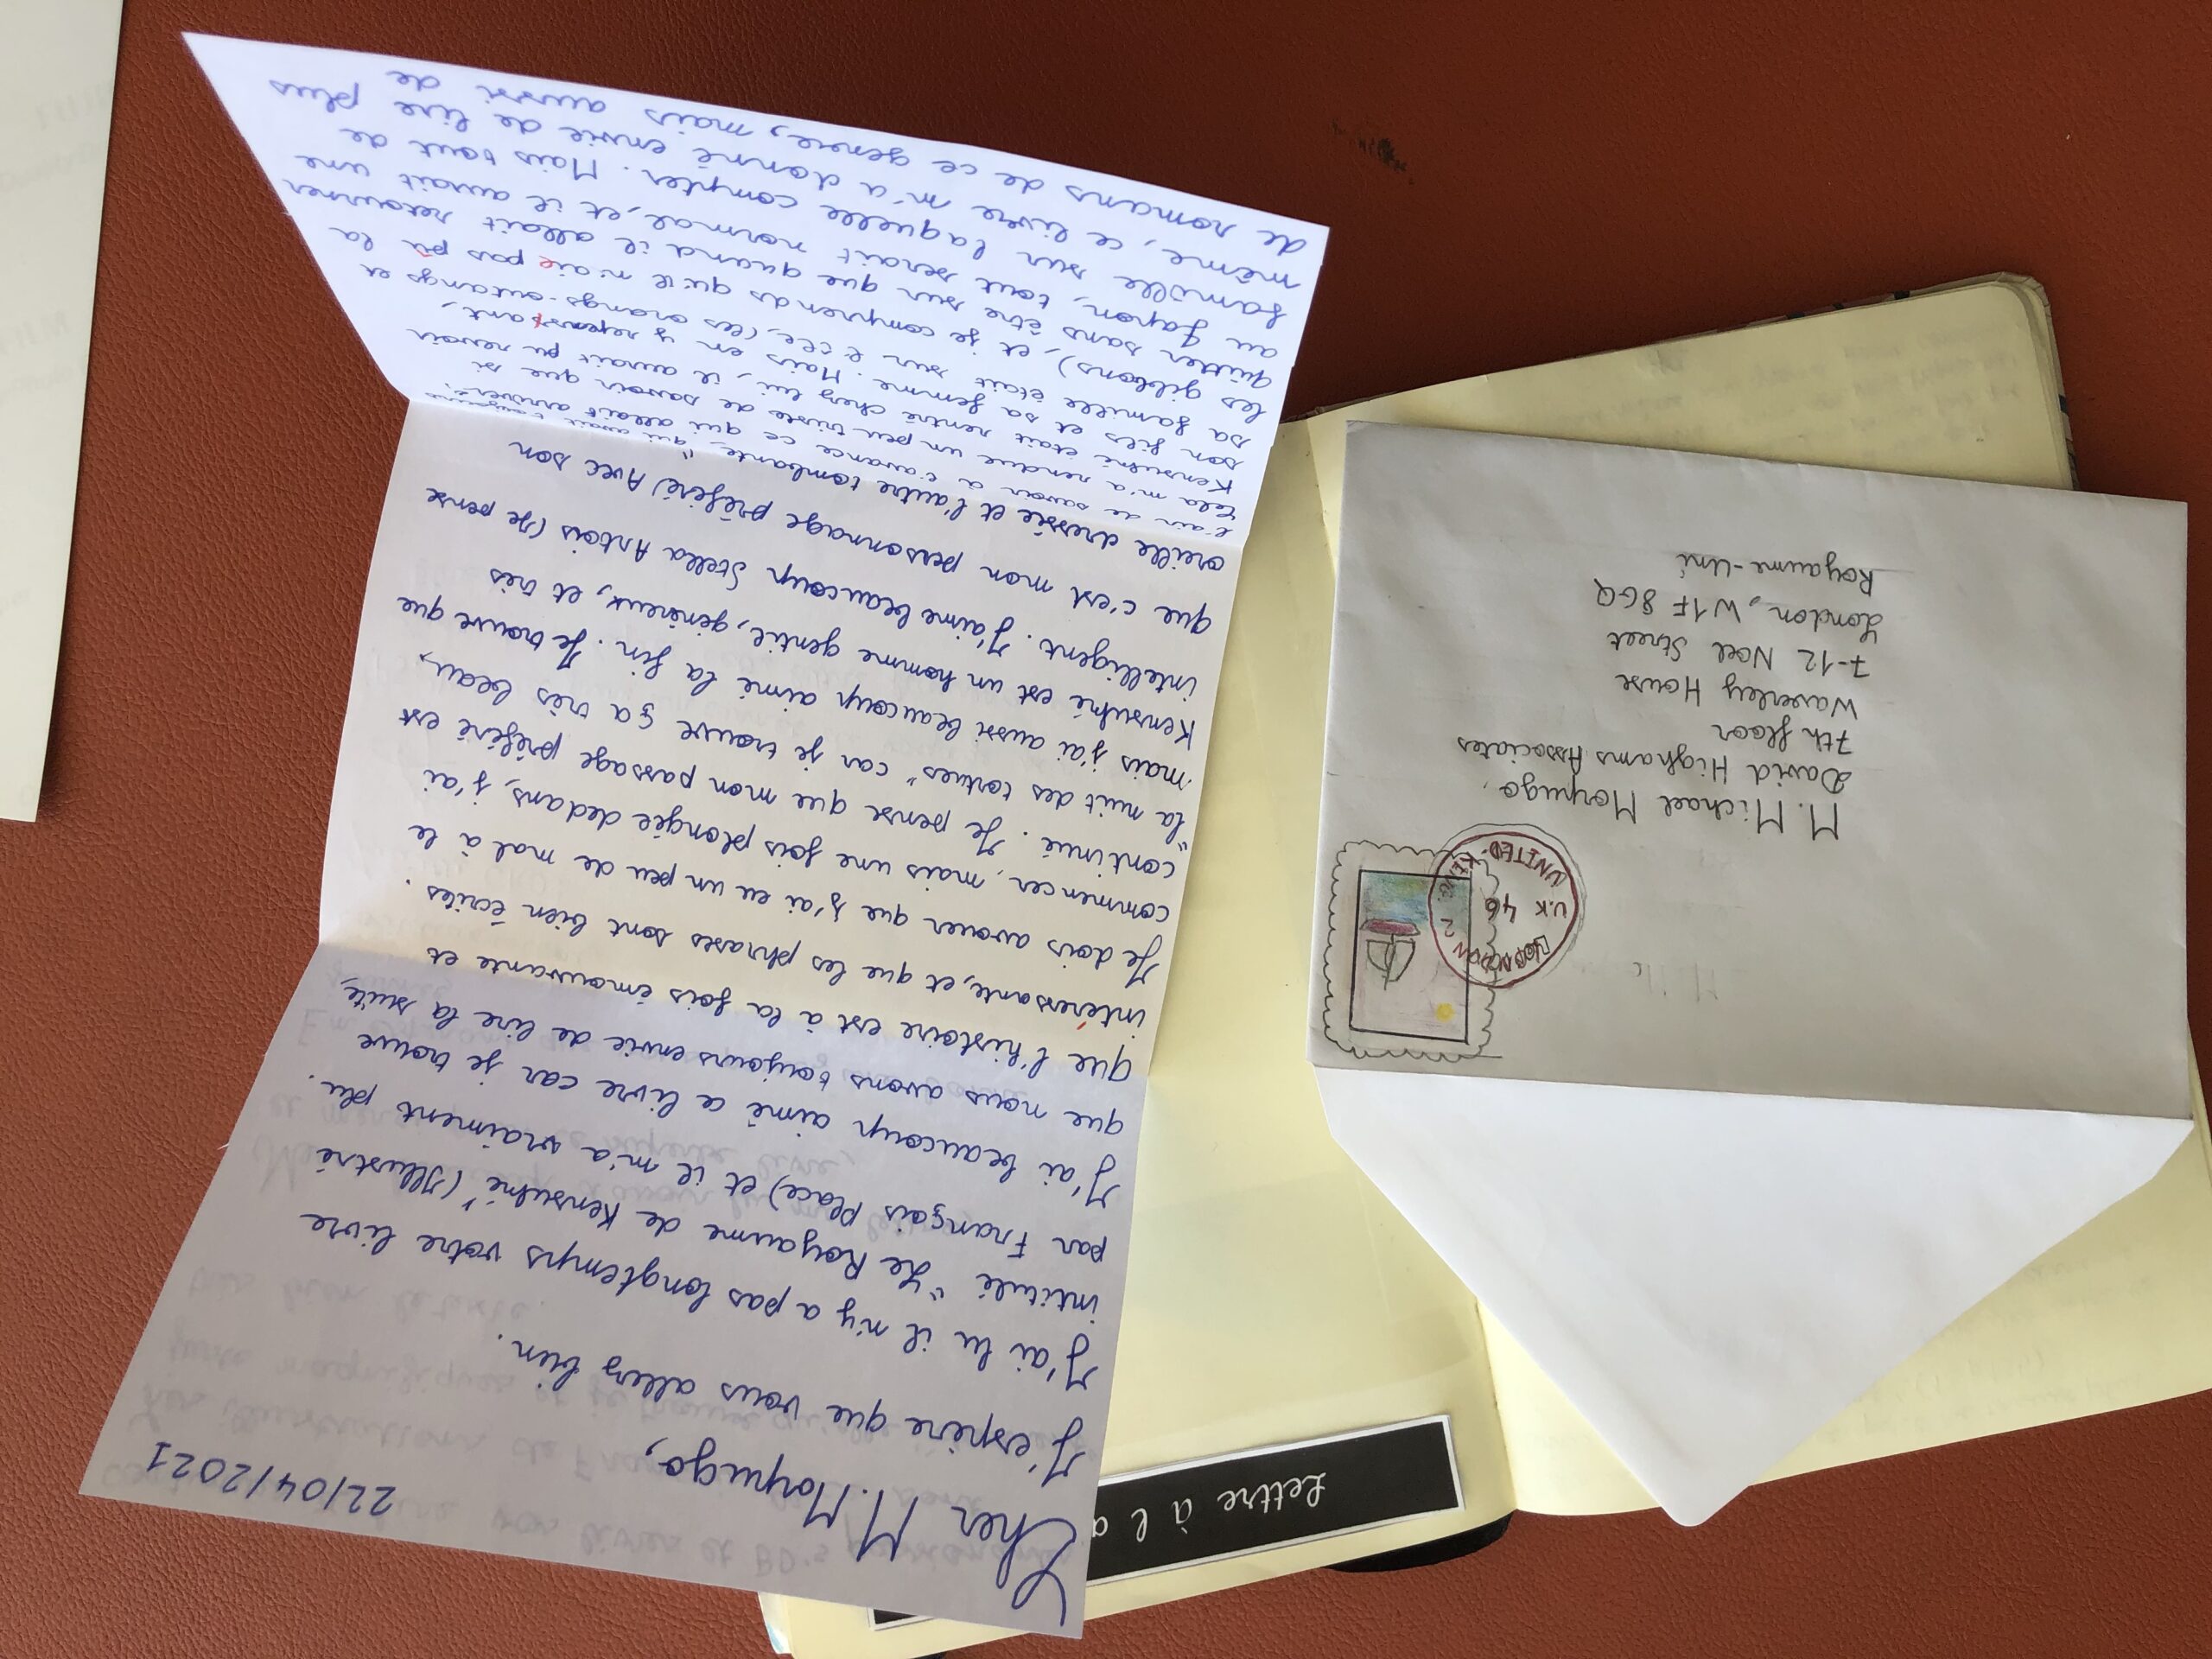 22/04/2021
Cher M. Morpugo,
J'espère que vous allez bien.
J'ai lu il n'y a pas longtemps votre livre
intitulé "Le Royaume de Kensuké" (Illustré
par François Place) et il m'a vraiment plu.
J'ai beaucoup aimé ce livre car je trouve
que nous avons toujours envie de lire la suite,
que l'histoire est à la fois émouvante et
intéressante, et que les phrases sont bien écrites.
Je dois avouer que j'ai eu un peu de mal à le
commencer, mais une fois plongée dedans, j'ai
continué. Je pense que mon passage préféré est
"la nuit des tortues" car je trouve ça très beau,
mais j'ai aussi beaucoup aimé la fin. Je trouve que
Kensuké est un homme gentil, généreux, et très
intelligent. J'aime beaucoup Stella Artois (Je pense
que c'est mon personnage préféré) Avec son
oreille dressée et l'autre tombante " qui avait toujours
l'air de savoir à l'avance ce qui allait arriver".
Cela m'a rendue un peu triste de savoir que si
Kensuké était rentré chez lui, il aurait pu revoir
son fils et sa femme. Mais en y repensant,
sa famille était sur l'île, (les orangs-outangs et
les gibbons), et je comprends qu'il n'aie pas pû la
quitter sans être sur que quand il allait retourner
au Japon, tout serait normal, et il aurait une
famille sur laquelle compter. Mais tout de
même, ce livre m'a donné envie de lire plus
de romans de ce genre, mais aussi de
M. Michael Morpugo,
David Highams Associates
7th floor
Waverley House
7-12 Noel Street
London, W1F 8GQ
Royaume-Uni
U.K 46
Lettre à l a